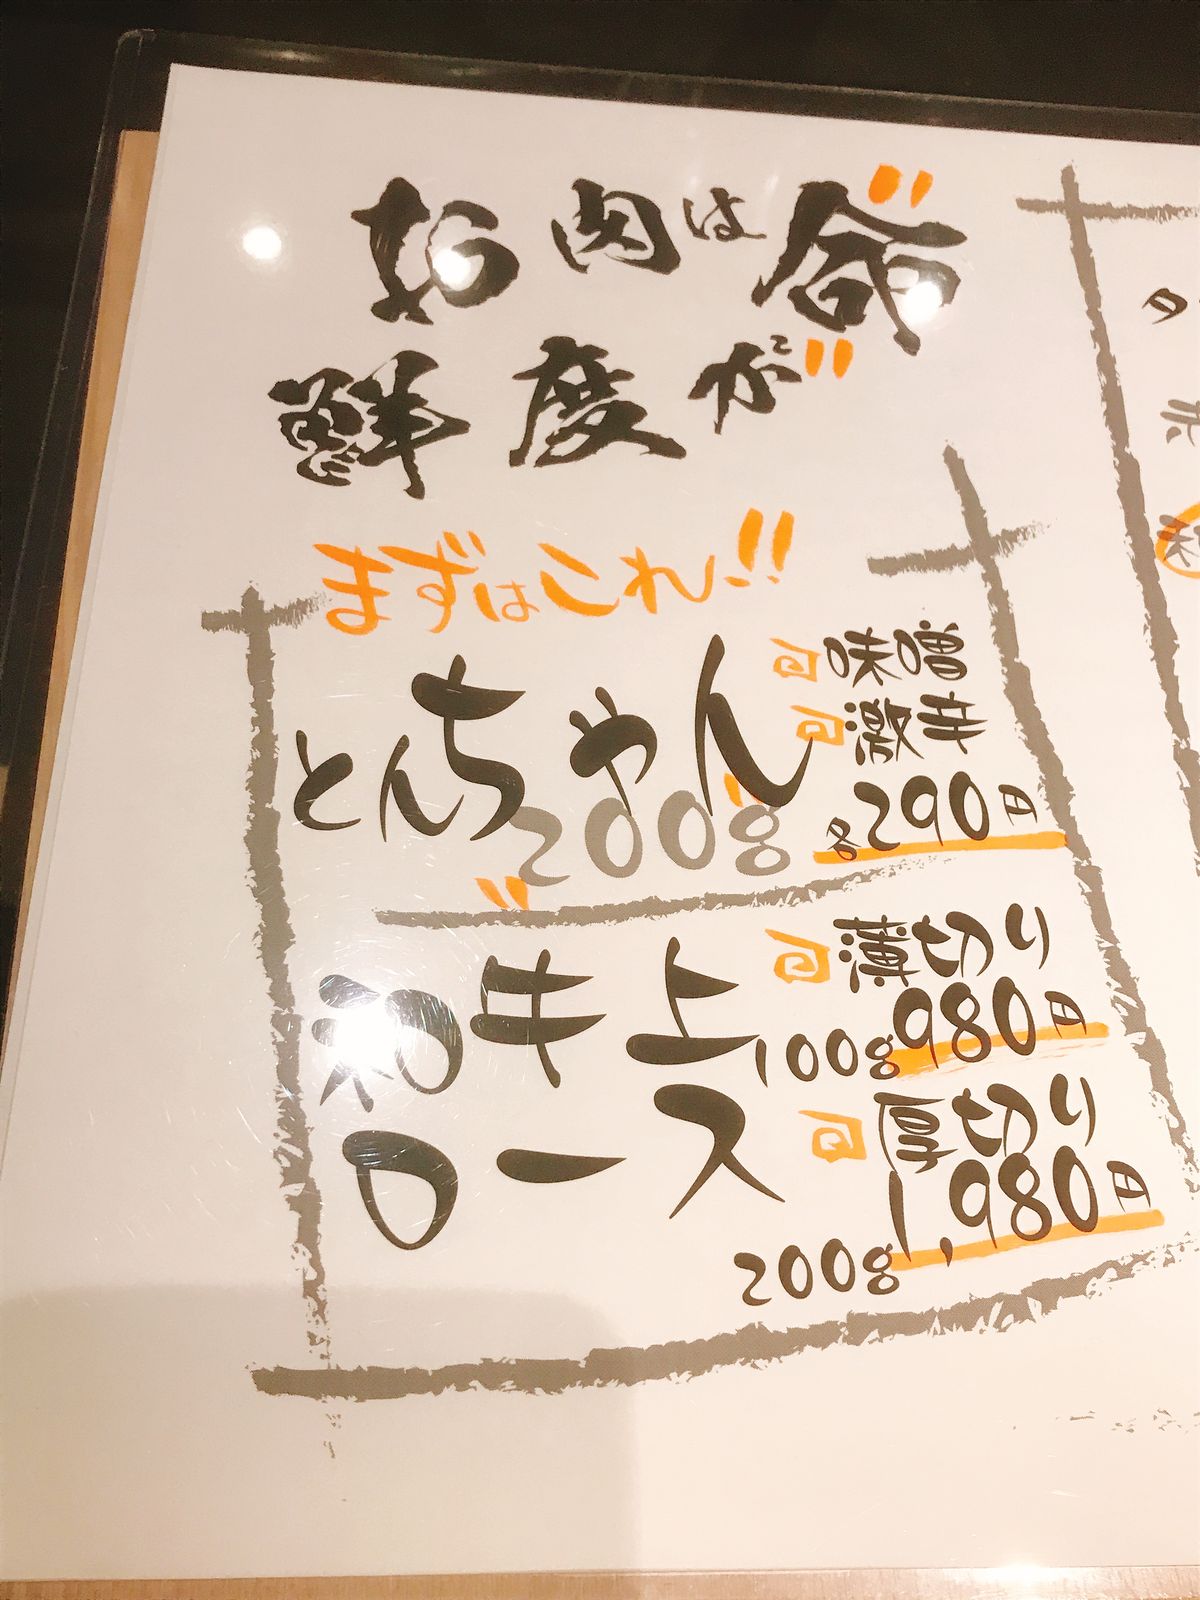 お肉は命
鮮度が
まずはこれ!!
とんちゃん
200g
味噌
激辛
各290円
和牛上
ロース
薄切り
100g980円
厚切り
200g1,980円